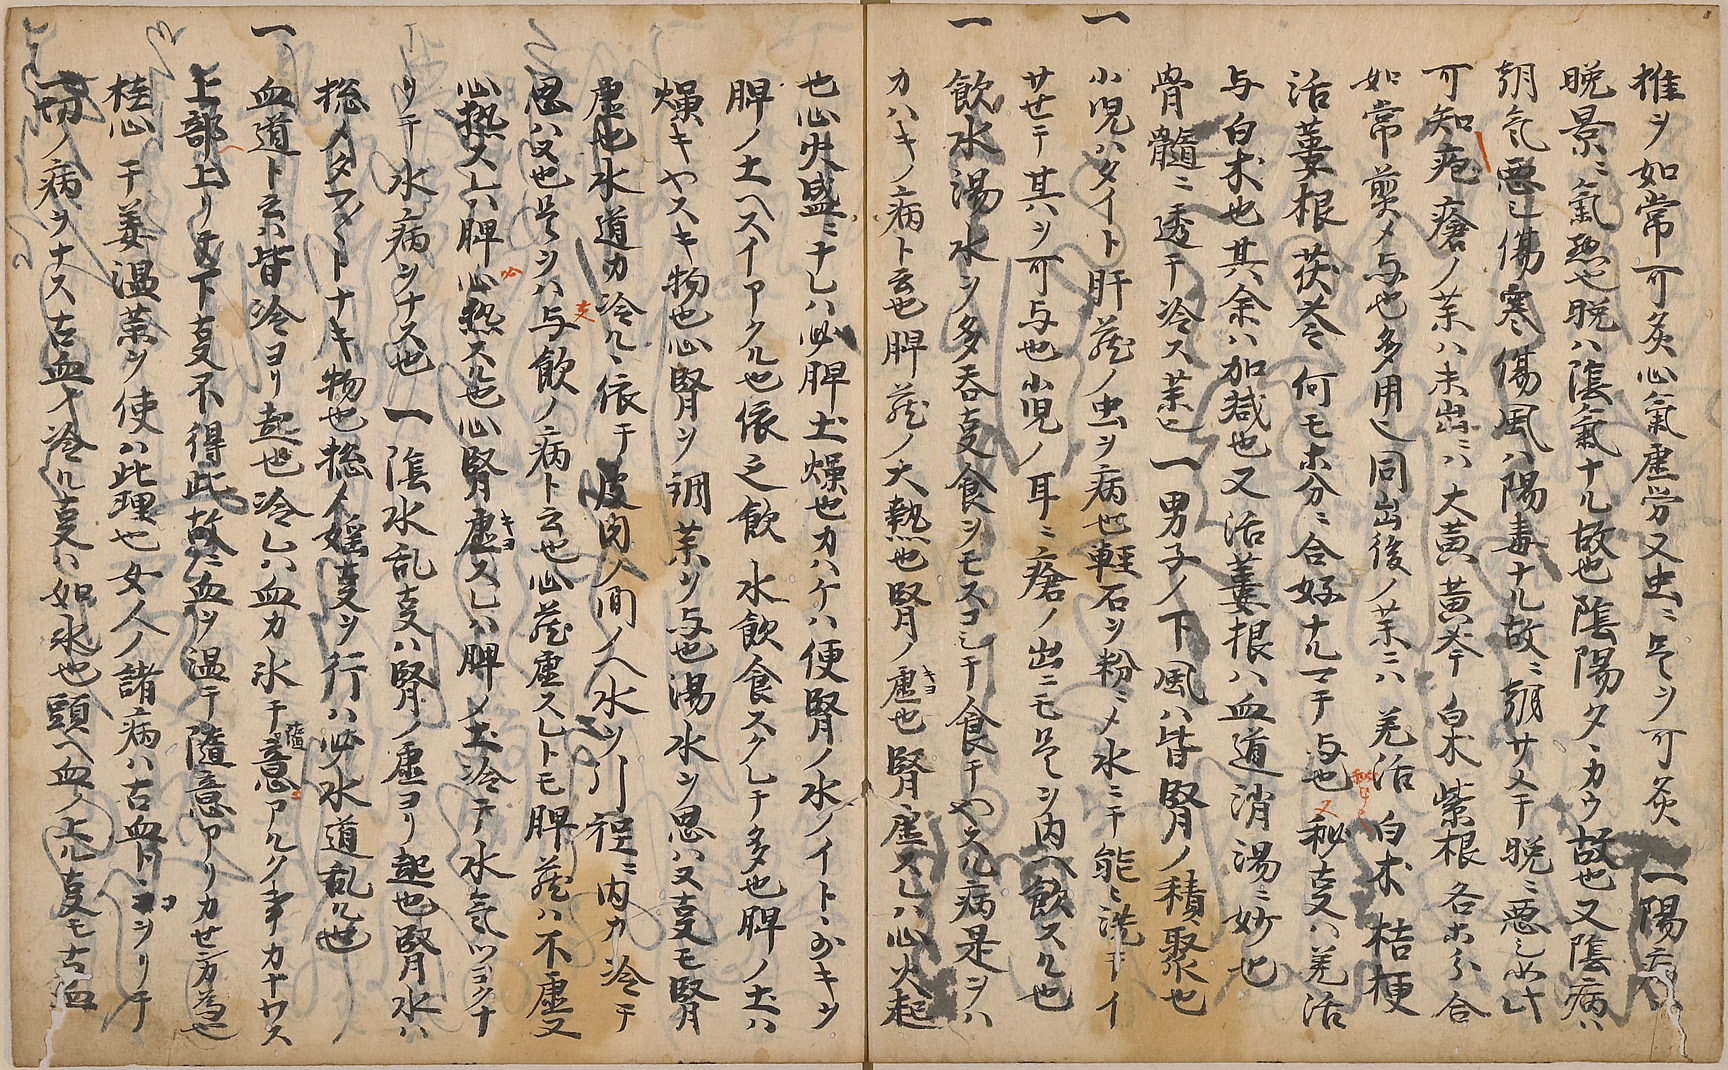 推ヲ如常可灸心氣虚労又虫ニ是ヲ可灸 一陽病
晩景ニ氣熱也晩ハ陰氣ナル故也陰陽タヽカウ故也又陰病ハ
朝氣悪シ傷寒傷風ハ陽毒ナル故ニ朝サメテ晩ニ悪シ以此
可知疱瘡ノ薬ハ未出ニハ大黄黄芩白朮紫根各等分合
如常煎メ与也多用之同出後ノ薬ニハ羌活白朮桔梗
活蔞根茯苓何モ等分ニ合好ナルマテ与也又秘支ハ羌活
与白朮也其余ハ加減也又活蔞根ハ血道消湯ニ妙也
骨髄ニ透テ冷ス薬也 一男子ノ下風ハ皆腎ノ積聚也
一 小児ハタイト肝蔵ノ虫ヲ病也軽石ヲ粉ニメ水ニテ能ニ洗テイ
サセテ其ハヲ可与也小児ノ耳ニ瘡ノ出ニモ是ヲ内ヘ飲スル也
一 飲水湯水ヲ多呑支食ヲモスコシテ食テヤスル病是ヲハ
カハキノ病ト云也脾蔵ノ大熱也腎ノ虚キヨ也腎虚スレハ心火起
也心火盛ニナレハ必脾土燥也カハケハ便腎ノ水ノイトヽおキヲ
脾ノ土ヘスイアクル也依之飲水飲食スクレテ多也脾ノ土ハ
燥キヤスキ物也心腎ヲ調薬ヲ与也湯水ヲ思ハヌ支モ腎
虚也水道カ冷ルヽ依テ皮肉ノ間ノヘ水ヲ引徑ニ内カ冷テ
思ハヌ也是ヲハ与飲ノ病ト云也心蔵虚スレトモ脾蔵ハ不虚又
心熱スレハ脾心熱スル也心腎虚キヨスレハ脾ノ土冷テ水氣ツヨクナ
リテ水病ヲナス也 一陰水乱支ハ腎ノ虚ヨリ起也腎水ハ
惣メタフ〱トナキ物也惣メ婬支ヲ行ハ必水道乱ル也
一 血道ト云ハ皆冷ヨリ起也冷レハ血カ氷テ意随ニアルク事カナワス
上部ヘ上リ又下支不得此故ニ血ヲ温テ隨意アリカセン為也
桂心干姜温薬ヲ使ハ此理也女人ノ諸病ハ古血トコヲリテ
一切ノ病ヲナス古血ノ冷ル支ハ如氷也頭ヘ血ノ上ル支モ古血